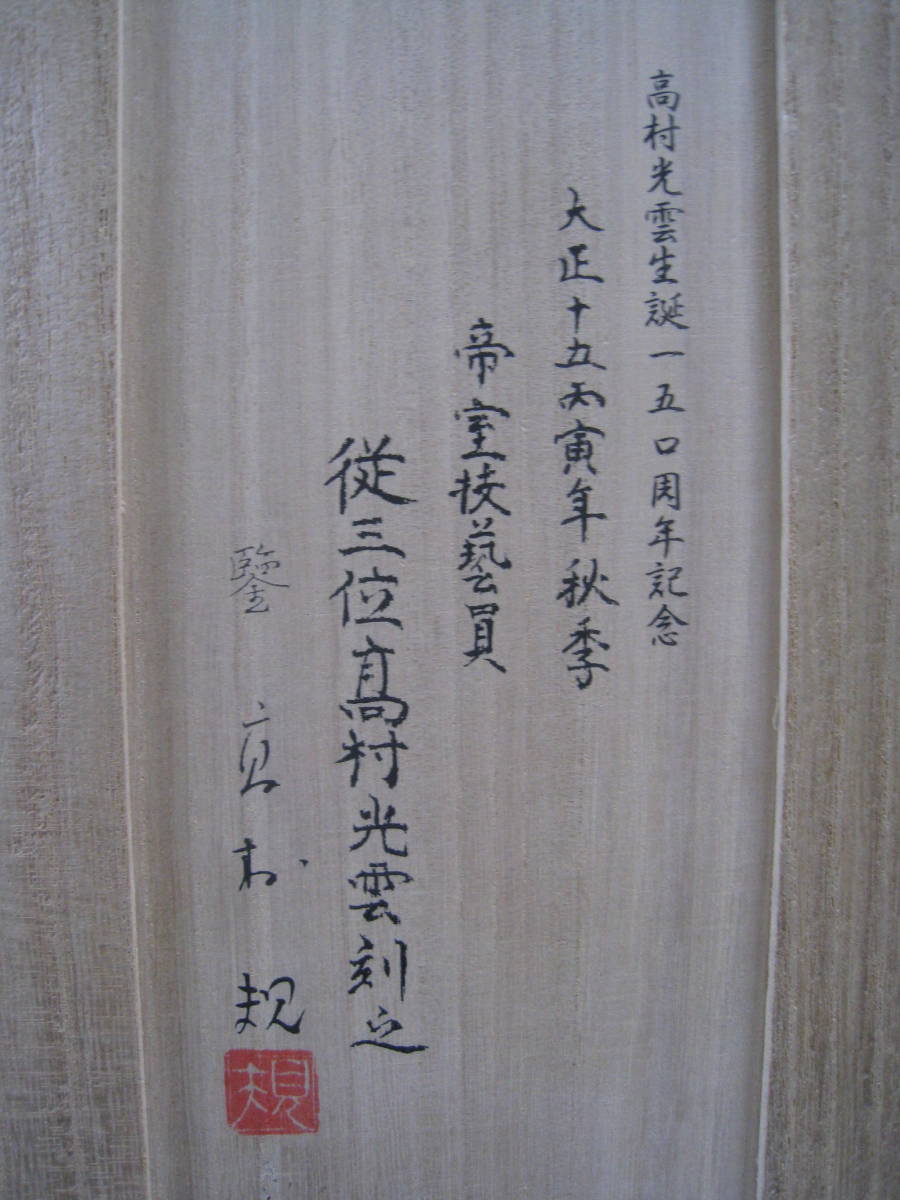 高村光雲生誕一五〇周年記念
大正十五丙寅年秋季
帝室技藝員
従三位髙村光雲刻之
鑒 高村規
規